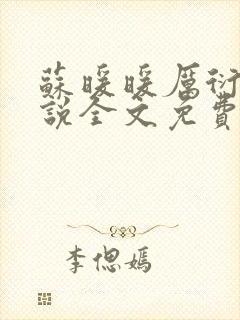 蘇暖暖厲衍
說全文免費
李偲嫣